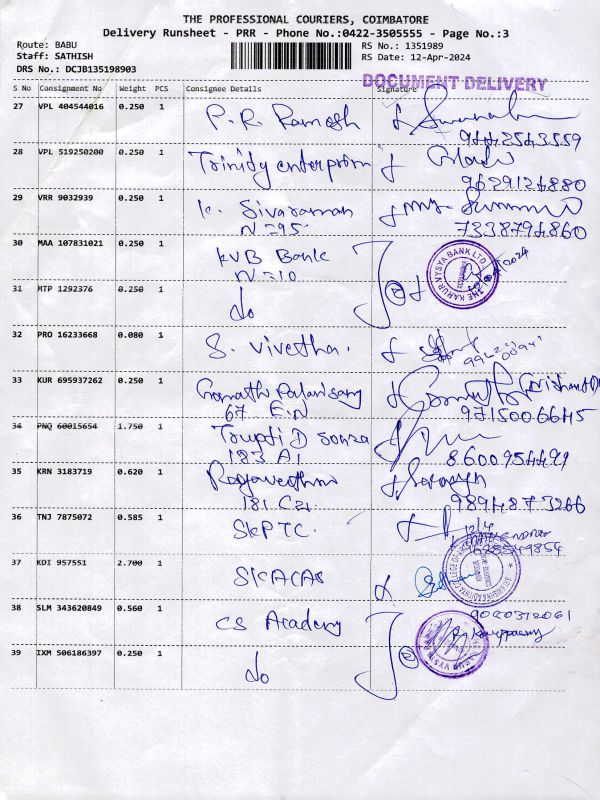 THE PROFESSIONAL COURIERS, COIMBATORE
Delivery Runsheet - PRR - Phone No.:0422-3505555 - Page No.:3
Route: BABU
Staff: SATHISH
DRS No.: DCJB135198903
RS No.: 1351989
RS Date: 12-Apr-2024
DOCUMENT DELIVERY
S No Consignment No Weight PCS Consignee Details Signature
27 VPL 404544016 0.250 1 P. R. Ramesh
9442543559
28 VPL 519250200 0.250 1 Trinity enterprises
9629126880
29 VRR 9032939 0.250 1 K. Sivaraman
N=95
7338794860
30 MAA 107831021 0.250 1 KVB Bank
N=10
THE KARUR VYSYA BANK LTD.
31 MTP 1292376 0.250 1 do
32 PRO 16233668 0.080 1 S. Vivetha.
33 KUR 695937262 0.250 1 Gomathi Palanisamy
67 E.N
9715006645
34 PNQ 60015654 1.750 1 Trupti D Souza
183 A1
8600954499
35 KRN 3183719 0.620 1
181 C2
9894873266
36 TNJ 7875072 0.585 1 SKPTC.
12/4
37 KDI 957551 2.700 1 SKACAS
38 SLM 343620849 0.560 1 CS Academy
39 IXM 506186397 0.250 1 do